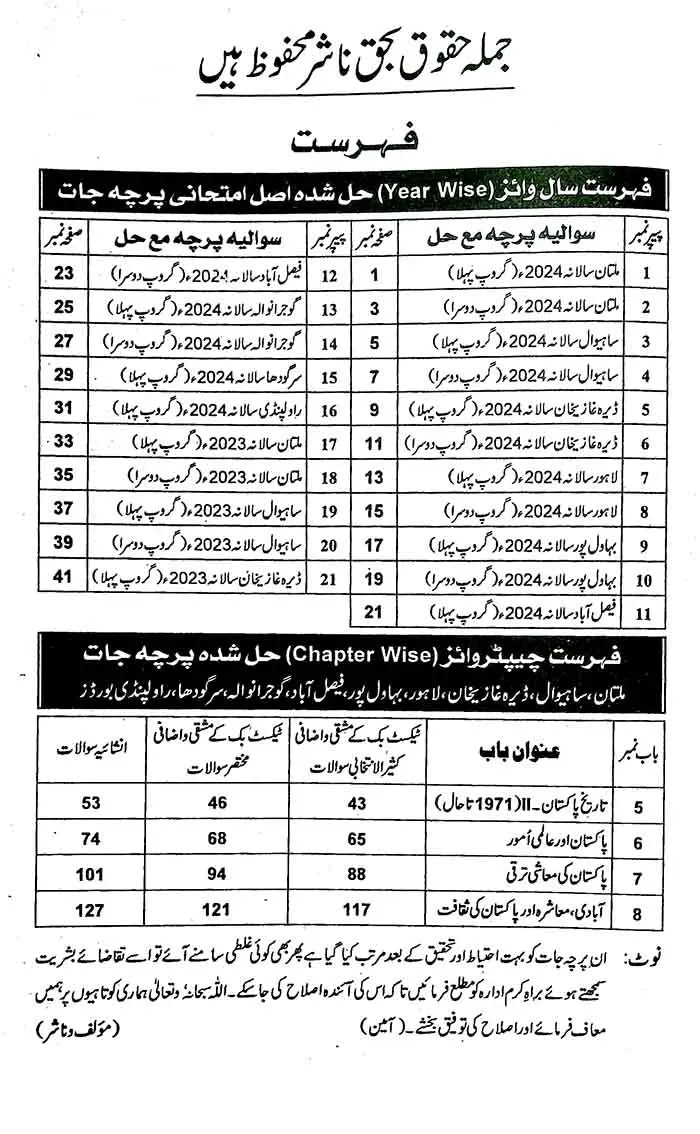 جملہ حقوق بحق ناشر محفوظ ہیں
فہرست
فہرست سال وائز (Year Wise) حل شدہ اصل امتحانی پرچہ جات
پیپر نمبر سوالیہ پرچہ مع حل صفحہ نمبر پیپر نمبر سوالیہ پرچہ مع حل صفحہ نمبر
1 ملتان سالانہ 2024ء (گروپ پہلا) 1 12 فیصل آباد سالانہ 2024ء (گروپ دوسرا) 23
2 ملتان سالانہ 2024ء (گروپ دوسرا) 3 13 گوجرانوالہ سالانہ 2024ء (گروپ پہلا) 25
3 ساہیوال سالانہ 2024ء (گروپ پہلا) 5 14 گوجرانوالہ سالانہ 2024ء (گروپ دوسرا) 27
4 ساہیوال سالانہ 2024ء (گروپ دوسرا) 7 15 سرگودھا سالانہ 2024ء (گروپ پہلا) 29
5 ڈیرہ غازیخان سالانہ 2024ء (گروپ پہلا) 9 16 راولپنڈی سالانہ 2024ء (گروپ پہلا) 31
6 ڈیرہ غازیخان سالانہ 2024ء (گروپ دوسرا) 11 17 ملتان سالانہ 2023ء (گروپ پہلا) 33
7 لاہور سالانہ 2024ء (گروپ پہلا) 13 18 ملتان سالانہ 2023ء (گروپ دوسرا) 35
8 لاہور سالانہ 2024ء (گروپ دوسرا) 15 19 ساہیوال سالانہ 2023ء (گروپ پہلا) 37
9 بہاول پور سالانہ 2024ء (گروپ پہلا) 17 20 ساہیوال سالانہ 2023ء (گروپ دوسرا) 39
10 بہاول پور سالانہ 2024ء (گروپ دوسرا) 19 21 ڈیرہ غازیخان سالانہ 2023ء (گروپ پہلا) 41
11 فیصل آباد سالانہ 2024ء (گروپ پہلا) 21
فہرست چیپٹر وائز (Chapter Wise) حل شدہ پرچہ جات
ملتان، ساہیوال، ڈیرہ غازیخان، لاہور، بہاول پور، فیصل آباد، گوجرانوالہ، سرگودھا، راولپنڈی بورڈز
باب نمبر عنوان باب ٹیکسٹ بک کے مشقی و اضافی کثیر الانتخابی سوالات ٹیکسٹ بک کے مشقی و اضافی مختصر سوالات انشائیہ سوالات
5 تاریخ پاکستان۔II (1971 تا حال) 43 46 53
6 پاکستان اور عالمی اُمور 65 68 74
7 پاکستان کی معاشی ترقی 88 94 101
8 آبادی، معاشرہ اور پاکستان کی ثقافت 117 121 127
نوٹ: ان پرچہ جات کو بہت احتیاط اور تحقیق کے بعد مرتب کیا گیا ہے پھر بھی کوئی غلطی سامنے آئے تو اسے تقاضائے بشریت
سمجھتے ہوئے براہِ کرم ادارہ کو مطلع فرمائیں تاکہ اس کی آئندہ اصلاح کی جا سکے۔ اللہ سبحانہٗ و تعالیٰ ہماری کوتاہیوں پر ہمیں
معاف فرمائے اور اصلاح کی توفیق بخشے۔ (آمین) (مؤلف و ناشر)